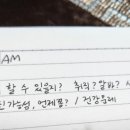 AM
할 수 있을지? 취직? 알바?
가능성, 언제쯤? / 건강문제